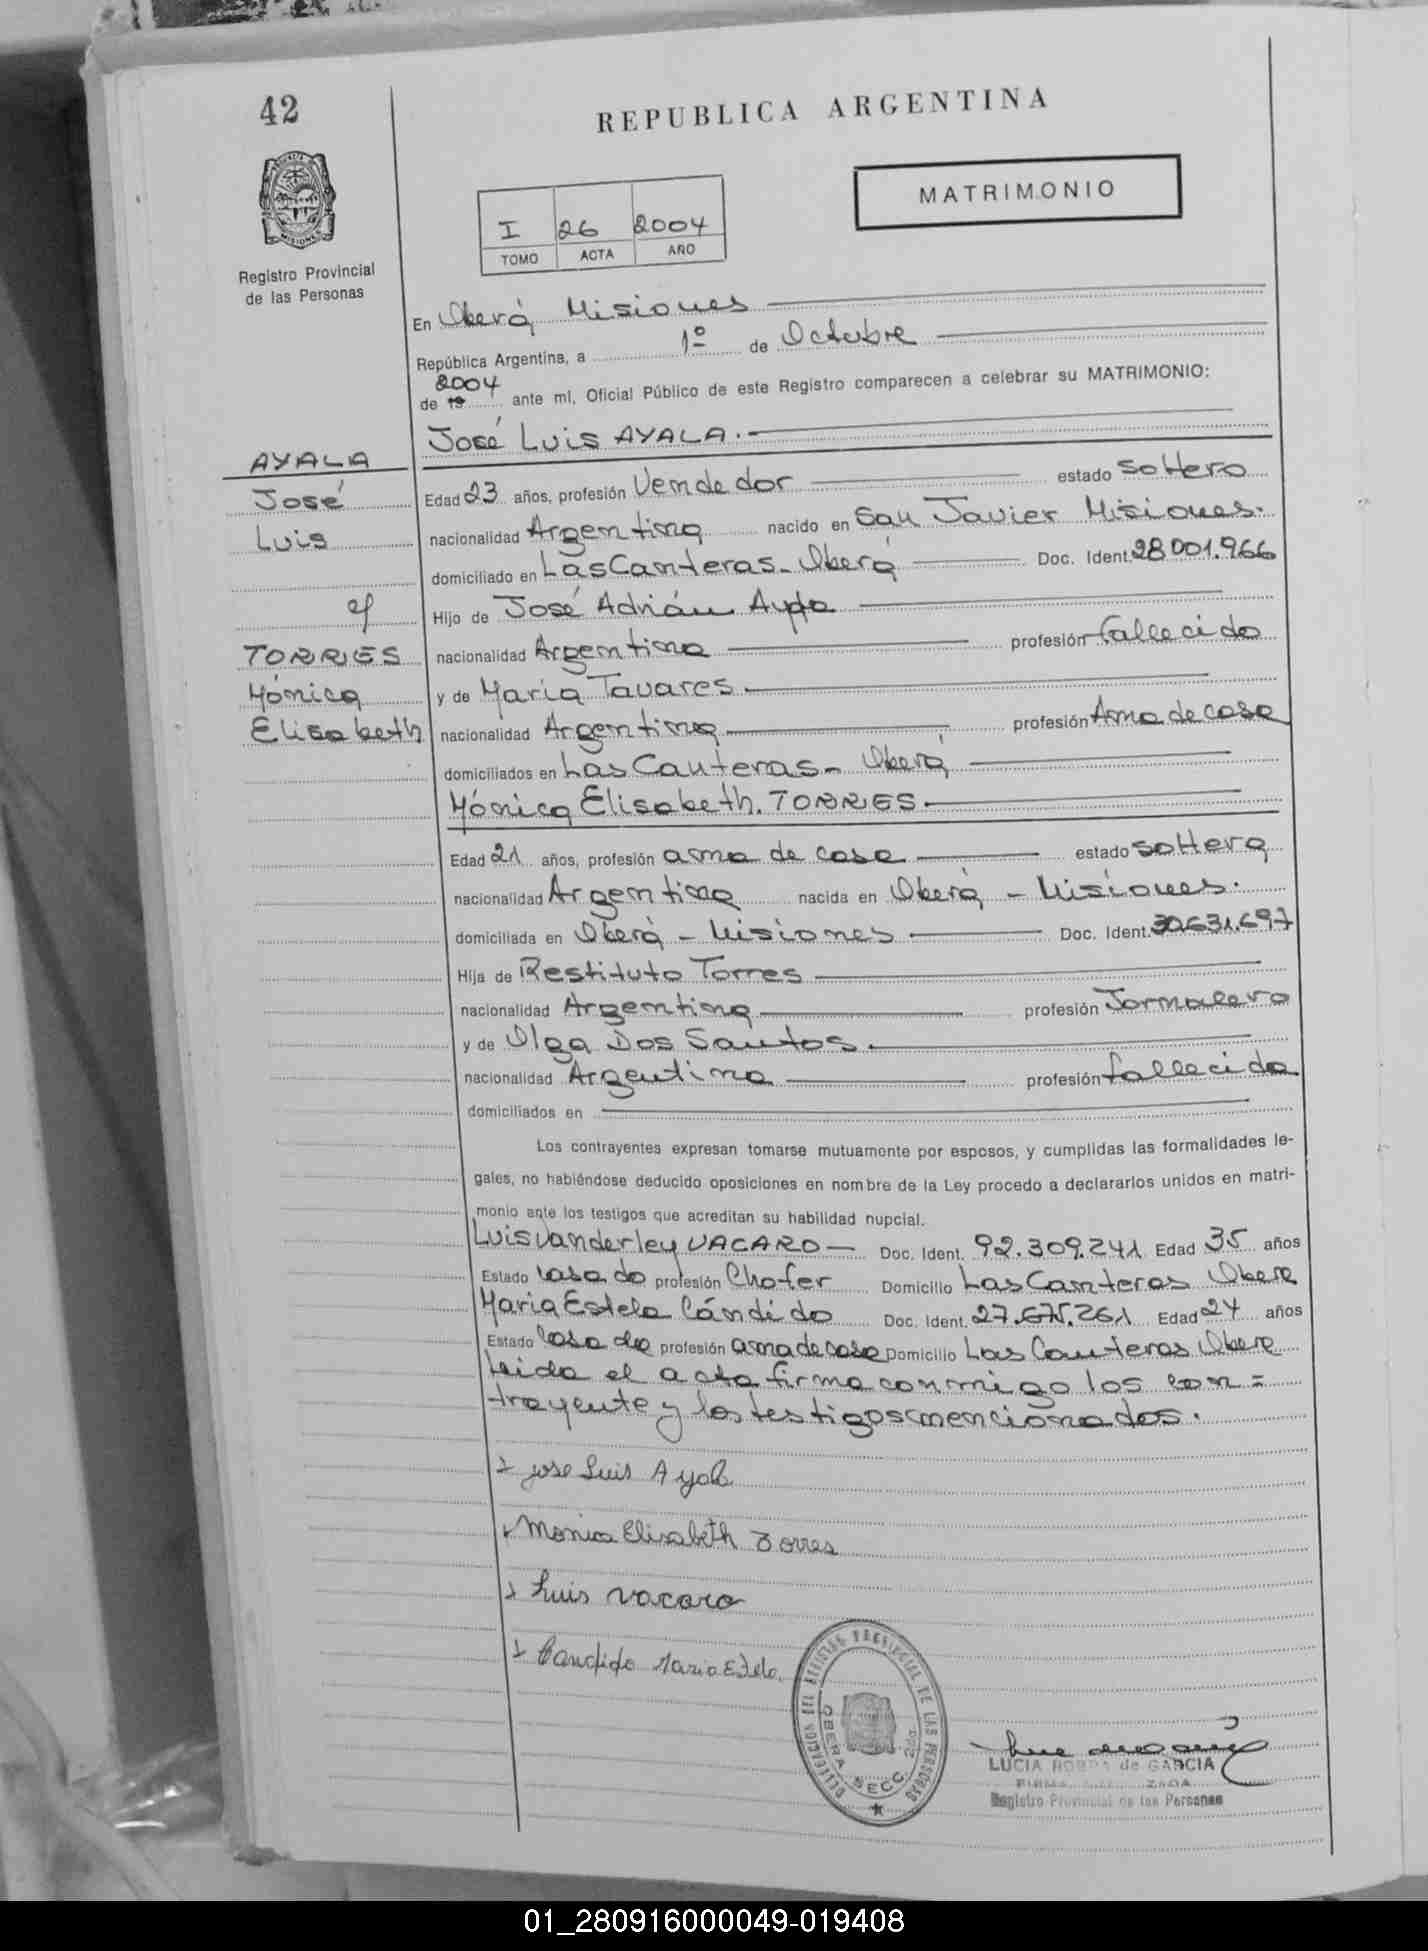 42
REPUBLICA ARGENTINA
MISIONES
MATRIMONIO
I 26 2004
TOMO ACTA AÑO
Registro Provincial
de las Personas
En Oberá Misiones
República Argentina, a 1º de Octubre
2004
de 19 ante mí, Oficial Público de este Registro comparecen a celebrar su MATRIMONIO:
José Luis AYALA.
AYALA
José
Luis
c/
TORRES
Mónica
Elisabeth
Edad 23 años, profesión Vendedor estado soltero
nacionalidad Argentina nacido en San Javier Misiones.
domiciliado en Las Canteras - Oberá Doc. Ident. 28001.966
Hijo de José Adrián
nacionalidad Argentina profesión fallecido
y de María Tavares
nacionalidad Argentina profesión Ama de casa
domiciliados en Las Canteras - Oberá
Mónica Elisabeth. TORRES
Edad 21 años, profesión ama de casa estado soltera
nacionalidad Argentina nacida en Oberá - Misiones.
domiciliada en Oberá - Misiones Doc. Ident. 30.631.697
Hija de Restituto Torres
nacionalidad Argentina profesión Jornalero
y de Olga Dos Santos.
nacionalidad Argentina profesión fallecida
domiciliados en
Los contrayentes expresan tomarse mutuamente por esposos, y cumplidas las formalidades le-
gales, no habiéndose deducido oposiciones en nombre de la Ley procedo a declararlos unidos en matri-
monio ante los testigos que acreditan su habilidad nupcial.
Luis Vanderley VACARO - Doc. Ident. 92.309.241 Edad 35 años
Estado casado profesión Chofer Domicilio Las Canteras Oberá
Maria Estela Cándido Doc. Ident. 27.675.261 Edad 24 años
Estado profesión ama de casa Domicilio Las Canteras Oberá
Leida el acta firma conmigo los con=
trayente y los testigos mencionados.
x Jose Luis Ayala
x Monica Elisabeth Torres
x Luis Vacaro
x Candido Maria Estela.
DELEGACION DEL REGISTRO PROVINCIAL DE LAS PERSONAS
OBERA SECC. 2da.
LUCIA de GARCIA
Registro Provincial de las Personas
01_280916000049-019408